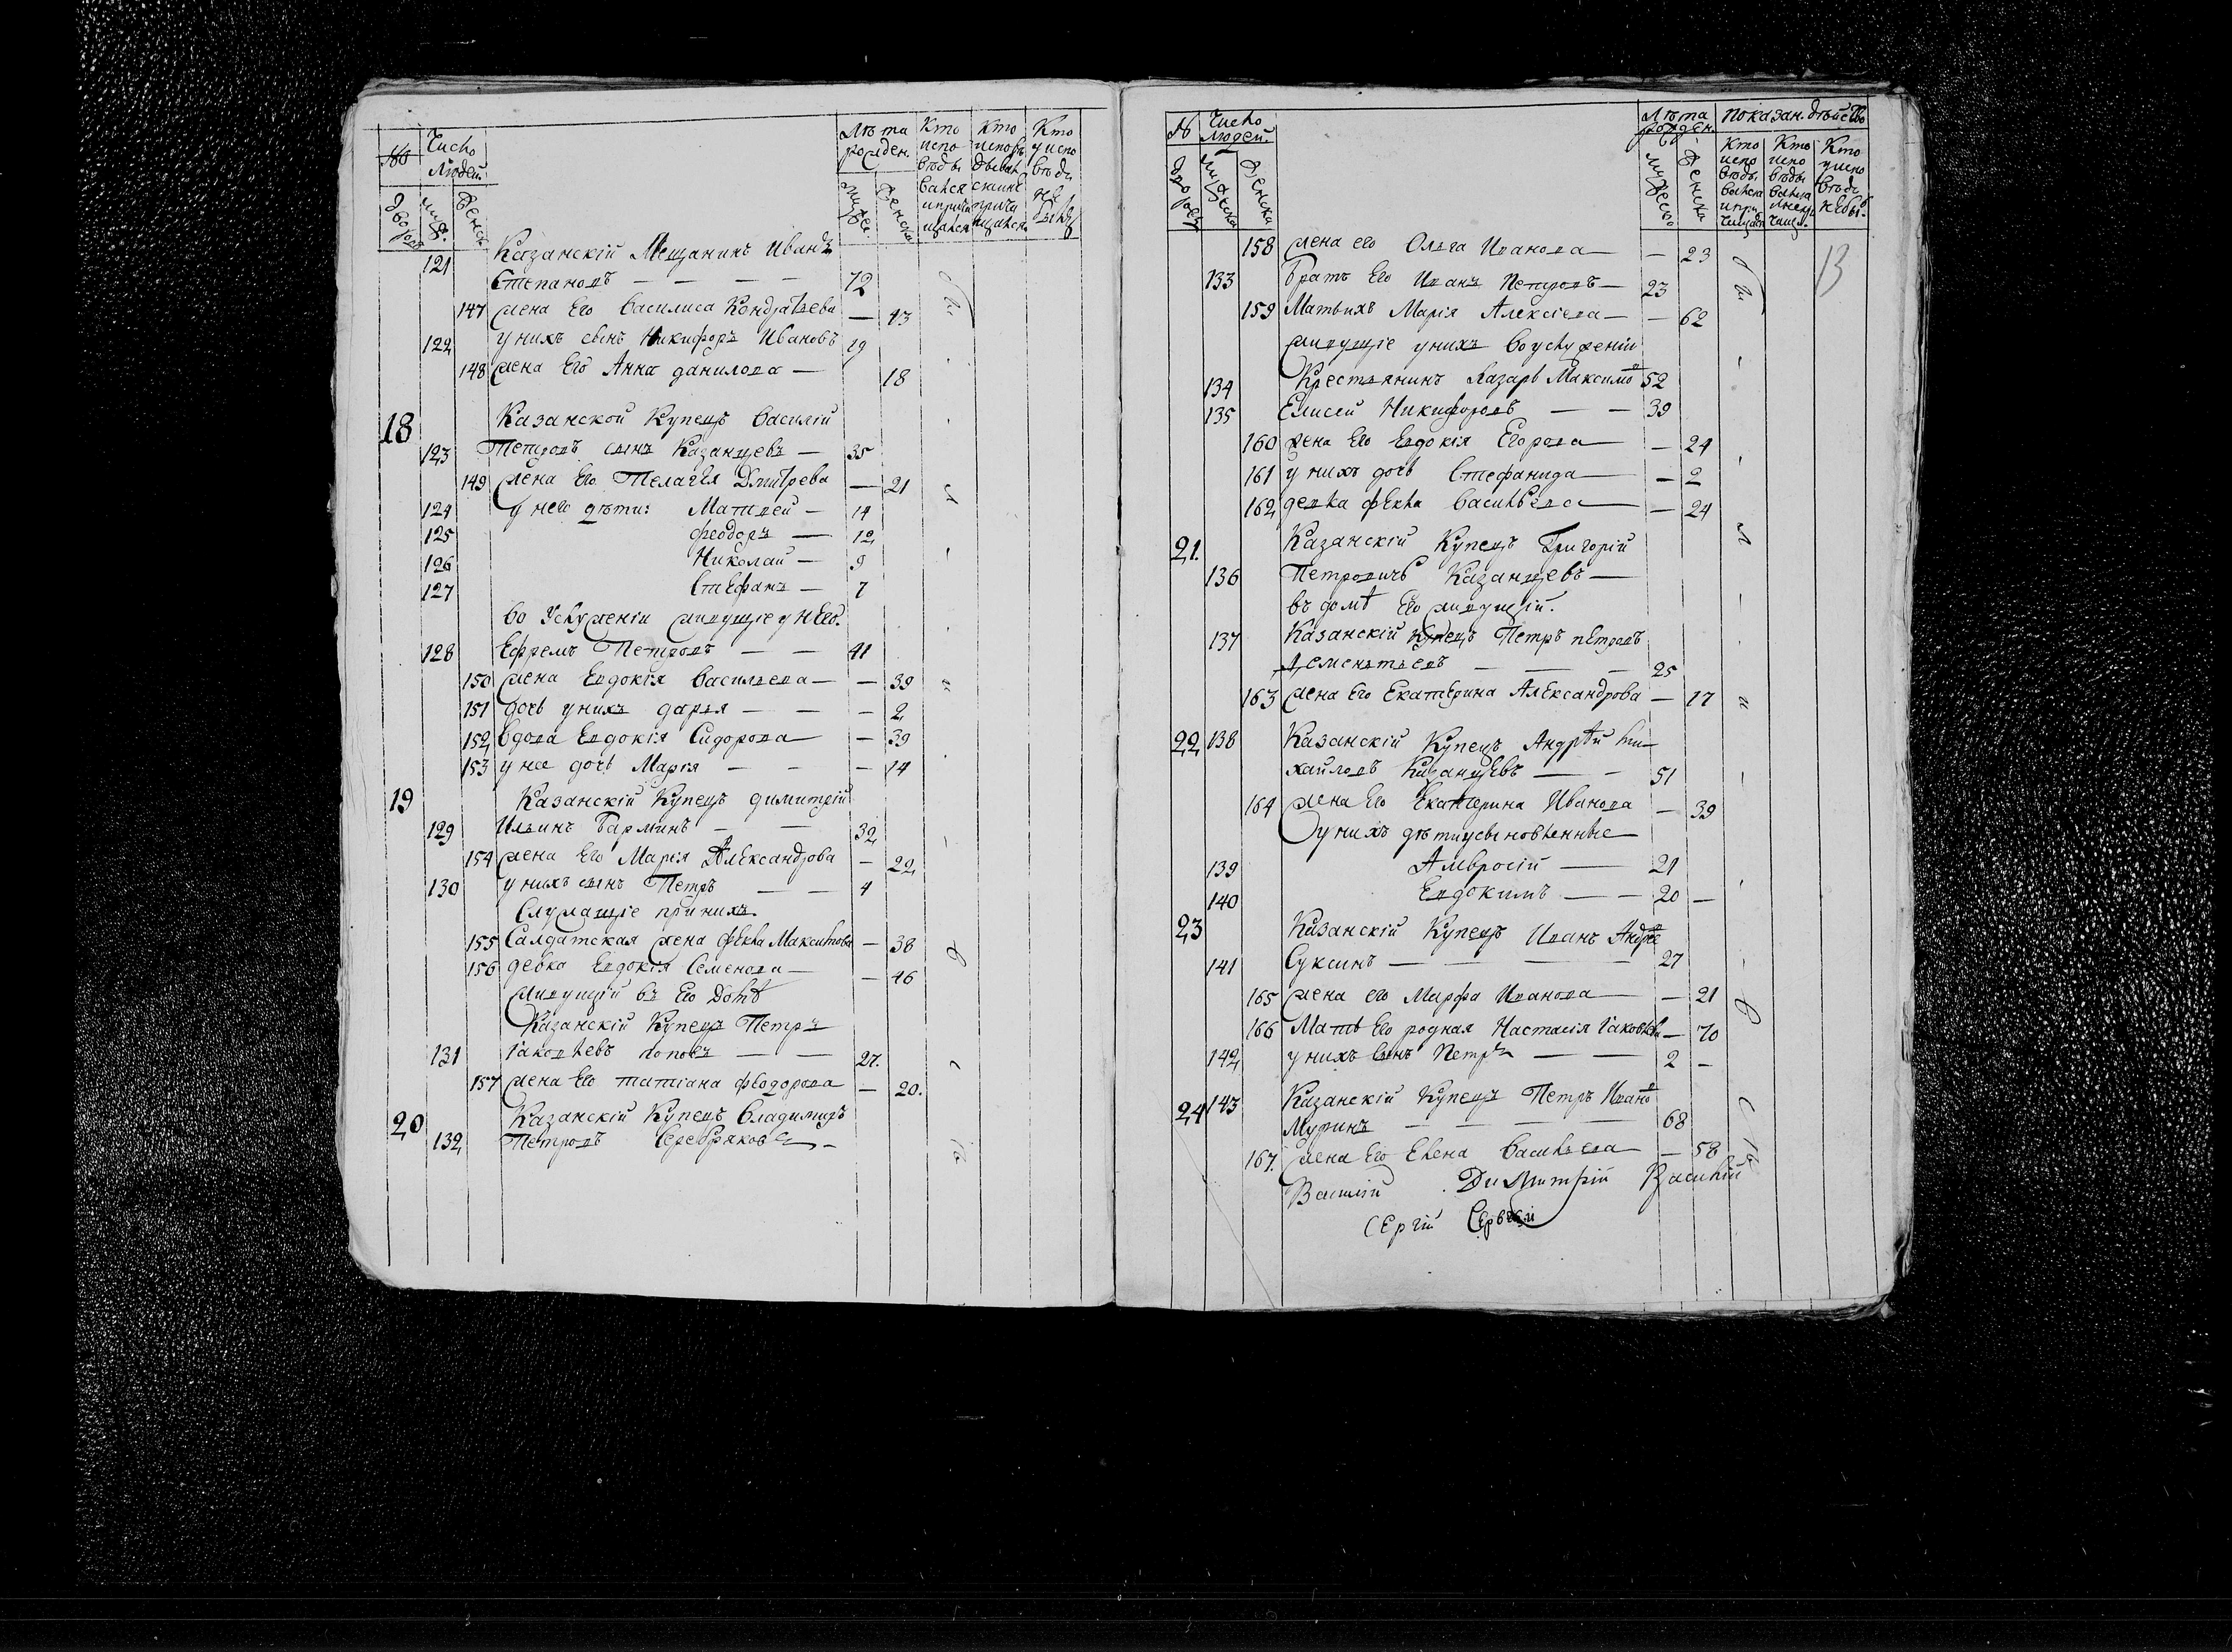 № Число Людей Лѣта рожден. Кто испо вѣды вался и прича щался Кто исповѣ дывал ся и не прича щался Кто у испо вѣди не был
дворов муж. женск. мужес. женска
121 Казанскій Мещанинъ Иванъ
Степановъ — — — 72
147 жена Его Василиса Кондратьева — 43
122 у нихъ сынъ Никифоръ Ивановъ 19
148 жена Его Анна Данилова — 18
18 Казанской Купецъ Василій
123 Петровъ сынъ Казанцевъ — 35
149 жена Его Пелагея Дмитрева — 21
124 у него дѣти: Матвей — 14
125 Феодоръ — 12
126 Николай — 9
127 Стефанъ — 7
во Услуженіи живущіе у Него.
128 Ефремъ Петровъ — — 41
150 жена Евдокія Васильева — — 39
151 дочь у нихъ Дарья — — — 2
152 вдова Евдокія Сидорова — 39
153 у нее дочь Марія — — — 14
19 Казанскій Купецъ Димитрій
129 Ильинъ Барминъ — — 32
154 жена Его Марія Александрова — 22
130 у нихъ сынъ Петръ — — 4
Служащіе при нихъ
155 Салдатская жена Фекла Максимова — 38
156 девка Евдокія Семенова — — 46
живущій въ Его Домѣ
Казанскій Купецъ Петръ
131 Іаковлевъ Поповъ — — 27.
157 жена Его Татіана Феодорова — 20.
20 Казанскій Купецъ Владимиръ
132 Петровъ Серебряковъ —
№ Число Людей. Лѣта рожден. Показан. дѣйство
дворов мужеска женска мужеско женска Кто испо вѣды вался и при чащал. Кто испо вѣды вался Кто у испо вѣди не бы.
13
158 жена его Ольга Иванова — — 23
133 Братъ Его Иванъ Петровъ — 23
159 Мать ихъ Марія Алексіева — — 62
живущіе у нихъ во услуженіи
134 Крестьянинъ Лазарь Максимо 52
135 Елисей Никифоровъ — — 39
160 жена Его Евдокія Егорова — 24
161 у нихъ дочь Стефанида — 2
162 девка Фекла Васильева — 24
21. Казанскій Купецъ Григорій
136 Петровичь Казанцевъ —
въ домѣ Его живущій.
137 Казанскій Купецъ Петръ Петровъ
Дементьевъ — — — 25
163 жена Его Екатерина Александрова — 17
22 138 Казанскій Купецъ Андрѣй Ми—
хайловъ Казанцевъ — — 51
164 жена Его Екатерина Иванова — 39
у нихъ дѣти усыновленные
139 Амвросій — 21
140 Евдокимъ — — 20 —
23 Казанскій Купецъ Иванъ Андрѣе
141 Суксинъ — — — 27
165 жена его Марфа Иванова — 21
166 Мать Его родная Настасія Іаковлев — 70
142 у нихъ сынъ Петръ — — 2 —
24 143 Казанскій Купецъ Петръ Ивано
Муринъ — — — 68
167. жена Его Елена Васильева — 58
Василій Димитрій Василій
Сергій